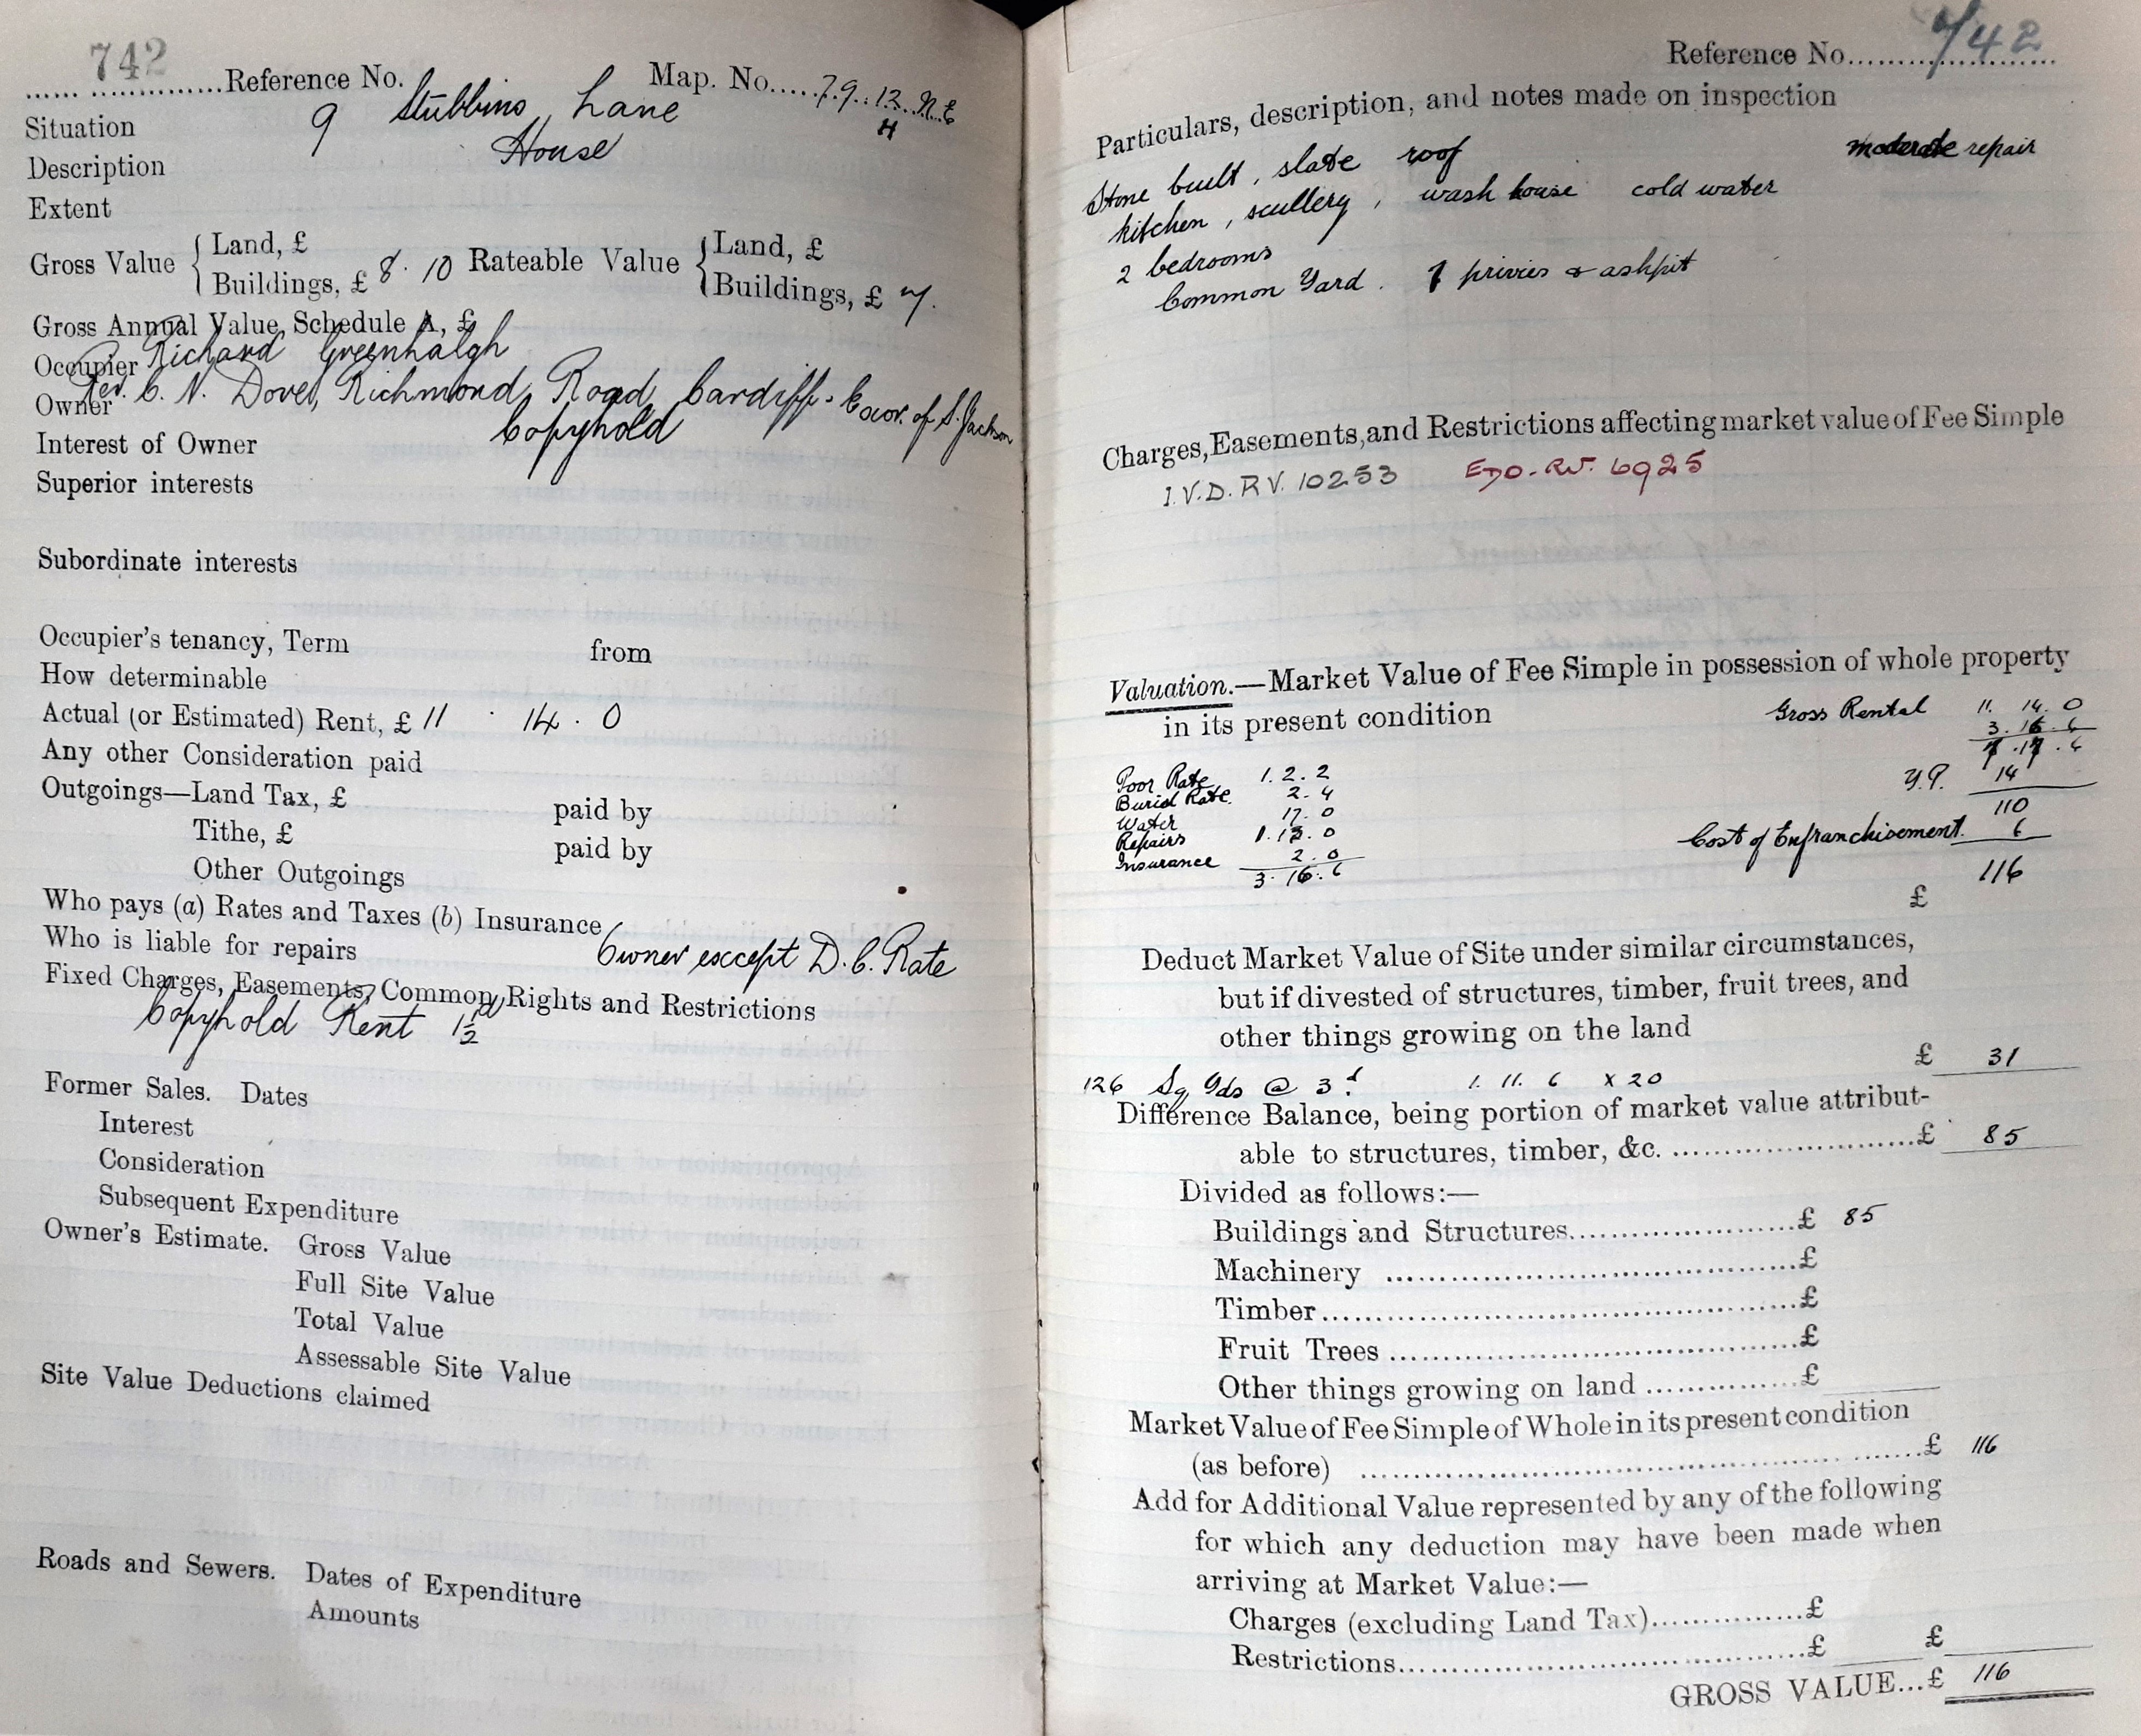 742
Reference No. Map. No. 79.12 N.E
H
Situation 9 Stubbins Lane
Description House
Extent
Gross Value { Land, £ Rateable Value { Land, £
Buildings, £ 8. 10 Buildings, £ 7.
Gross Annual Value, Schedule A, £
Occupier Richard Greenhalgh
Owner Rev. C. N. Dovel, Richmond Road Cardiff. Exor. of S. Jackson
Interest of Owner Copyhold
Superior interests
Subordinate interests
Occupier's tenancy, Term from
How determinable
Actual (or Estimated) Rent, £ 11 . 14 . 0
Any other Consideration paid
Outgoings—Land Tax, £ paid by
Tithe, £ paid by
Other Outgoings
Who pays (a) Rates and Taxes (b) Insurance
Who is liable for repairs Owner except D.C. Rate
Fixed Charges, Easements, Common Rights and Restrictions
Copyhold Rent 1½d
Former Sales. Dates
Interest
Consideration
Subsequent Expenditure
Owner's Estimate. Gross Value
Full Site Value
Total Value
Assessable Site Value
Site Value Deductions claimed
Roads and Sewers. Dates of Expenditure
Amounts
Reference No. 742
Particulars, description, and notes made on inspection
Stone built, slate roof moderate repair
kitchen, scullery, wash house cold water
2 bedrooms
Common Yard. 7 privies & ashpit
Charges, Easements, and Restrictions affecting market value of Fee Simple
I.V.D. R.V. 10253 EDO-RV. 6925
Valuation.—Market Value of Fee Simple in possession of whole property
in its present condition Gross Rental 11. 14. 0
3. 16. 6
7. 17. 6
Poor Rate 1. 2. 2
Y.P. 14
Burial Rate. 2. 4
110
Water 17. 0
Cost of Enfranchisement. 6
Repairs 1. 13. 0
Insurance 2. 0
116
3. 16. 6
£
Deduct Market Value of Site under similar circumstances,
but if divested of structures, timber, fruit trees, and
other things growing on the land
£ 31
126 Sq Yds @ 3d. 1. 11. 6 x 20
Difference Balance, being portion of market value attribut-
able to structures, timber, &c. £ 85
Divided as follows:—
Buildings and Structures £ 85
Machinery £
Timber £
Fruit Trees £
Other things growing on land £
Market Value of Fee Simple of Whole in its present condition
(as before) £ 116
Add for Additional Value represented by any of the following
for which any deduction may have been made when
arriving at Market Value:—
Charges (excluding Land Tax) £
Restrictions £ £
GROSS VALUE...£ 116